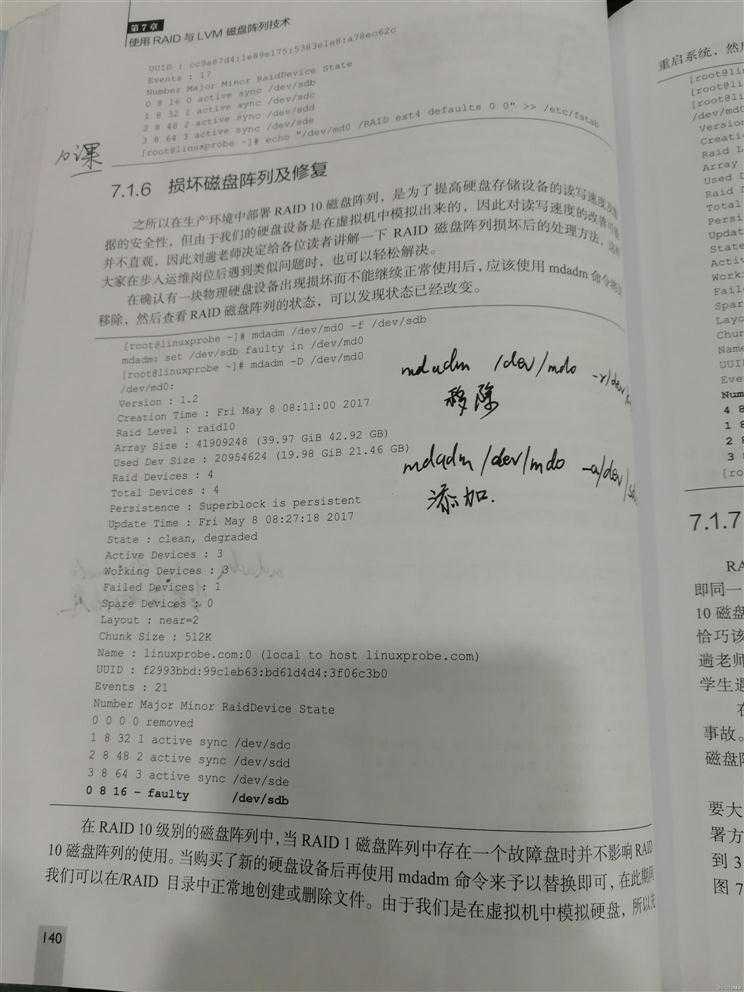 第7章
使用RAID与LVM磁盘阵列技术
UUID : cc9a87d4:1e89e175:5383e1e8:a78ec62c
Events : 17
Number Major Minor RaidDevice State
0 8 16 0 active sync /dev/sdb
1 8 32 1 active sync /dev/sdc
2 8 48 2 active sync /dev/sdd
3 8 64 3 active sync /dev/sde
[root@linuxprobe ~]# echo "/dev/md0 /RAID ext4 defaults 0 0" >> /etc/fstab
课
7.1.6 损坏磁盘阵列及修复
之所以在生产环境中部署RAID 10磁盘阵列，是为了提高硬盘存储设备的读写速度
据的安全性，但由于我们的硬盘设备是在虚拟机中模拟出来的，因此对读写速度的改善
并不直观，因此刘遄老师决定给各位读者讲解一下RAID 磁盘阵列损坏后的处理方法，
大家在步入运维岗位后遇到类似问题时，也可以轻松解决。
在确认有一块物理硬盘设备出现损坏而不能继续正常使用后，应该使用mdadm命令
移除，然后查看RAID磁盘阵列的状态，可以发现状态已经改变。
[root@linuxprobe ~]# mdadm /dev/md0 -f /dev/sdb
mdadm: set /dev/sdb faulty in /dev/md0
[root@linuxprobe ~]# mdadm -D /dev/md0
/dev/md0:
Version : 1.2
Creation Time : Fri May 8 08:11:00 2017
Raid Level : raid10
Array Size : 41909248 (39.97 GiB 42.92 GB)
Used Dev Size : 20954624 (19.98 GiB 21.46 GB)
Raid Devices : 4
Total Devices : 4
Persistence : Superblock is persistent
Update Time : Fri May 8 08:27:18 2017
State : clean, degraded
Active Devices : 3
Working Devices : 3
Failed Devices : 1
Spare Devices : 0
Layout : near=2
Chunk Size : 512K
Name : linuxprobe.com:0 (local to host linuxprobe.com)
UUID : f2993bbd:99c1eb63:bd61d4d4:3f06c3b0
Events : 21
Number Major Minor RaidDevice State
0 0 0 0 removed
1 8 32 1 active sync /dev/sdc
2 8 48 2 active sync /dev/sdd
3 8 64 3 active sync /dev/sde
0 8 16 - faulty /dev/sdb
mdadm /dev/md0 -r/dev
移除
mdadm /dev/md0 -a/dev/
添加.
在RAID 10级别的磁盘阵列中，当RAID 1磁盘阵列中存在一个故障盘时并不影响RAID
10磁盘阵列的使用。当购买了新的硬盘设备后再使用mdadm命令来予以替换即可，在此期间
我们可以在/RAID 目录中正常地创建或删除文件。由于我们是在虚拟机中模拟硬盘，所以先
140
重启系统，然
[root@li
[root@li
[root@li
/dev/md
Version
Creati
Raid L
Array
Used
Raid
Total
Persi
Updat
State
Activ
Work
Fail
Spar
Layo
Chun
Name
UUI
Eve
Num
4 8
1 8
2 8
3
[ro
7.1.7
RA
即同一
10磁
恰巧该
遄老师
学生退
在
事故。
磁盘阵
要大
署方
到3
图7